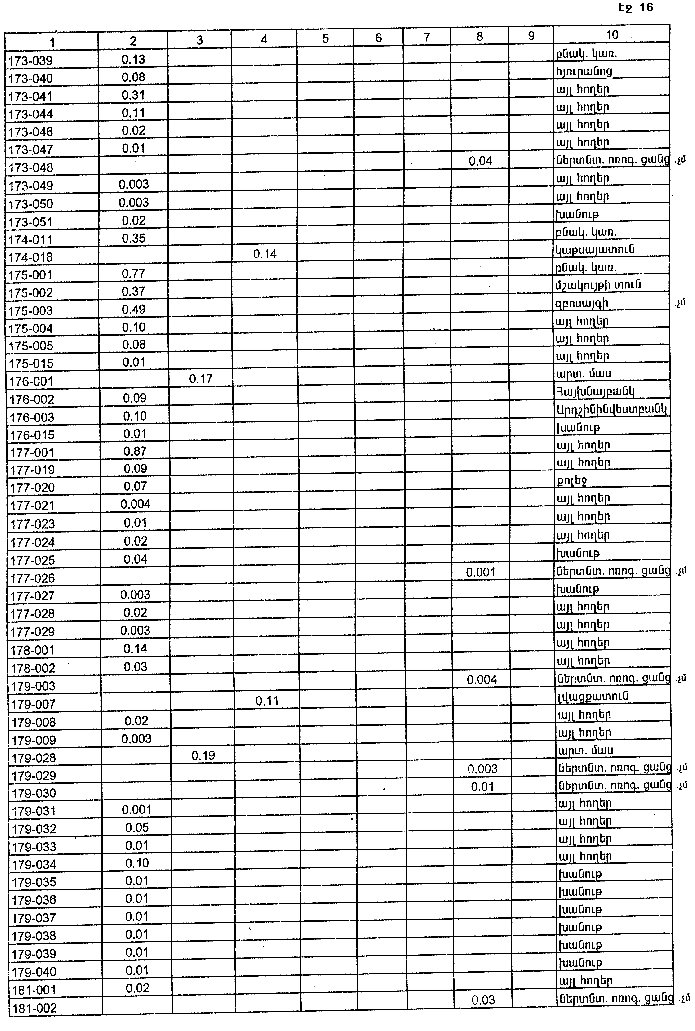 էջ 16
1 2 3 4 5 6 7 8 9 10
173-039 0.13 բնակ. կառ.
173-040 0.08 հյուրանոց
173-041 0.31 այլ հողեր
173-044 0.11 այլ հողեր
173-046 0.02 այլ հողեր
173-047 0.01 այլ հողեր
173-048 0.04 ներտնտ. ոռոգ. ցանց
173-049 0.003 այլ հողեր
173-050 0.003 այլ հողեր
173-051 0.02 խանութ
174-011 0.35 բնակ. կառ.
174-018 0.14 կաթսայատուն
175-001 0.77 բնակ. կառ.
175-002 0.37 մշակույթի տուն
175-003 0.49 զբոսայգի
175-004 0.10 այլ հողեր
175-005 0.08 այլ հողեր
175-015 0.01 այլ հողեր
176-001 0.17 արտ. մաս
176-002 0.09 Հայխնայբանկ
176-003 0.10 Արդշինինվեստբանկ
176-015 0.01 խանութ
177-001 0.87 այլ հողեր
177-019 0.09 այլ հողեր
177-020 0.07 քոլեջ
177-021 0.004 այլ հողեր
177-023 0.01 այլ հողեր
177-024 0.02 այլ հողեր
177-025 0.04 խանութ
177-026 0.001 ներտնտ. ոռոգ. ցանց
177-027 0.003 խանութ
177-028 0.02 այլ հողեր
177-029 0.003 այլ հողեր
178-001 0.14 այլ հողեր
178-002 0.03 այլ հողեր
179-003 0.004 ներտնտ. ոռոգ. ցանց
179-007 0.11 լվացքատուն
179-008 0.02 այլ հողեր
179-009 0.003 այլ հողեր
179-028 0.19 արտ. մաս
179-029 0.003 ներտնտ. ոռոգ. ցանց
179-030 0.01 ներտնտ. ոռոգ. ցանց
179-031 0.001 այլ հողեր
179-032 0.05 այլ հողեր
179-033 0.01 այլ հողեր
179-034 0.10 այլ հողեր
179-035 0.01 խանութ
179-036 0.01 խանութ
179-037 0.01 խանութ
179-038 0.01 խանութ
179-039 0.01 խանութ
179-040 0.01 խանութ
181-001 0.02 այլ հողեր
181-002 0.03 ներտնտ. ոռոգ. ցանց